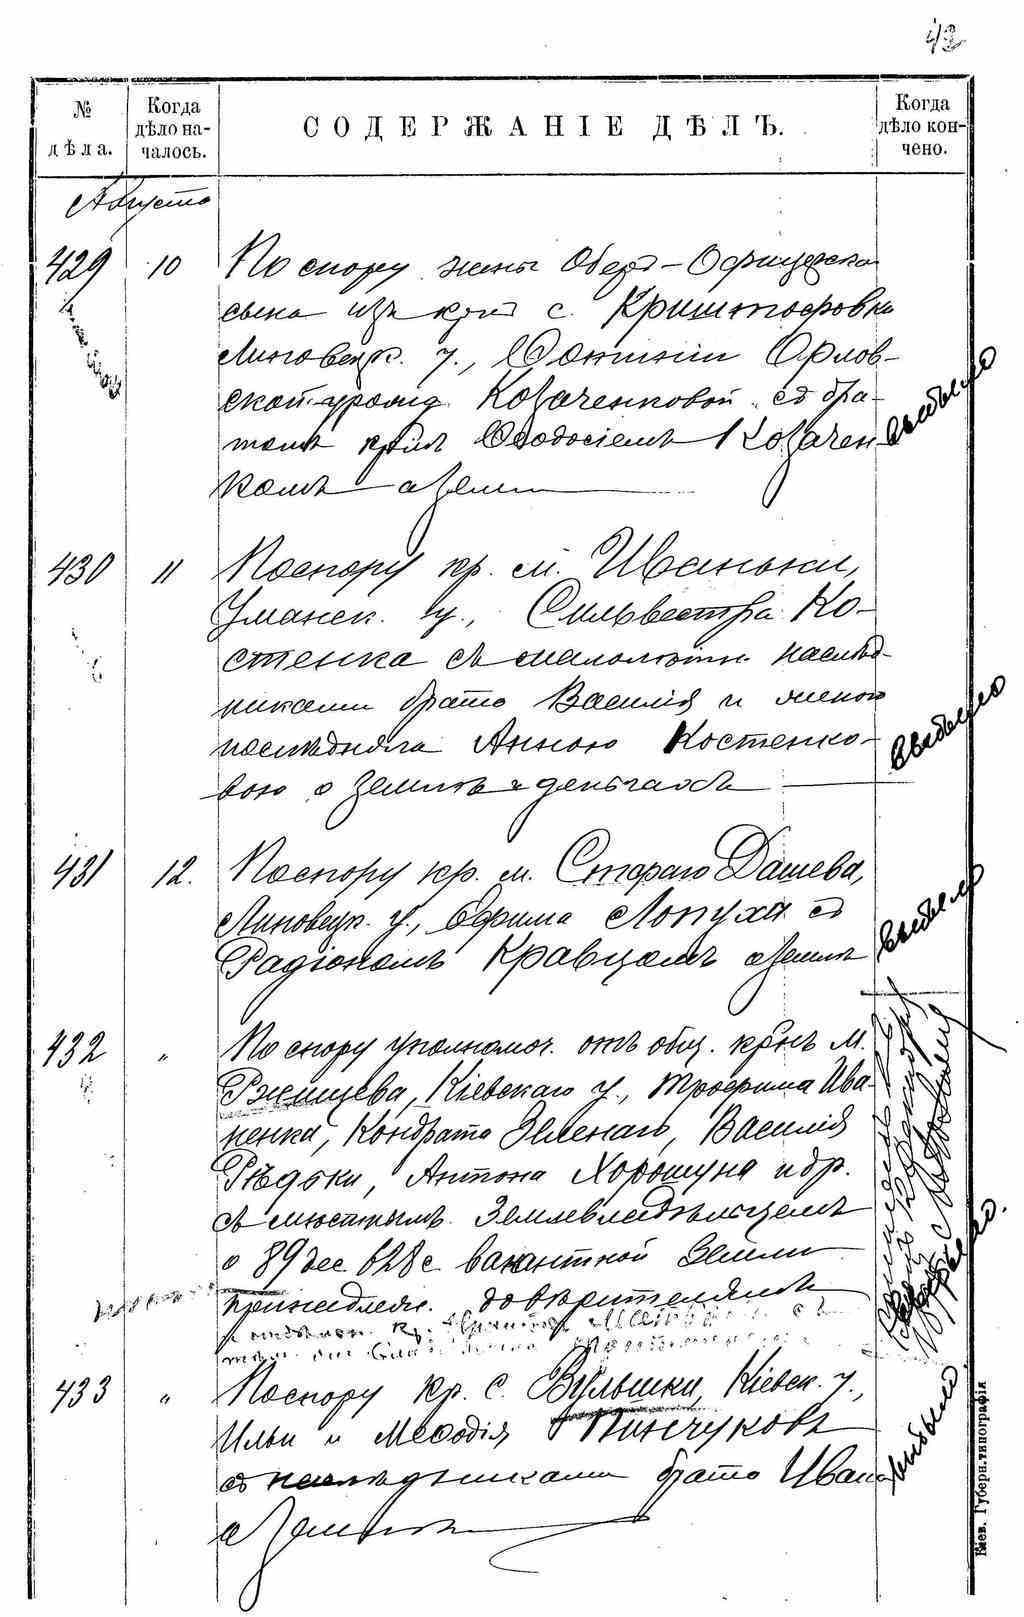 43
№ дѣла.
Когда дѣло началось.
СОДЕРЖАНІЕ ДѢЛЪ.
Когда дѣло кончено.
Августа
429 10 По спору жены Оберъ-Офицерска
сына изъ с. Криштофовки
Липовецк. у., Орлов-
ской урожд. Козаченковой съ бра-
томъ Ѳеодосіемъ Козачен-
комъ о земли
выбыло
430 11 По спору кр. м. Иваньки,
Уманск. у., Сильвестра Ко-
стенка съ малолѣтн. наслѣд-
никами брата Василія и женою
послѣдняго Анною Костенко-
вою о землѣ и деньгахъ
выбыло
431 12. По спору кр. м. Стараго Дашева,
Липовецк. у., Ефима Лопухи съ
Радіономъ Кравцомъ о землѣ
выбыло
432 " По спору уполномоч. отъ общ. кр-нъ м.
Ржищева, Кіевскаго у., Трофима Ива-
ненка, Кондрата Зеленаго, Василія
Рѣдьки, Антона Хорошуна и др.
съ мѣстнымъ землевладѣльцемъ
о 89 дес 628 с вакантной земли
принадлеж. довѣрителямъ
433 " По спору кр. с. Вульшки, Кіевск. у.,
Ильи и Меѳодія Пинчуковъ
съ наслѣдниками брата Ивана
о землѣ
выбыло
Кіев. Губерн. типографія